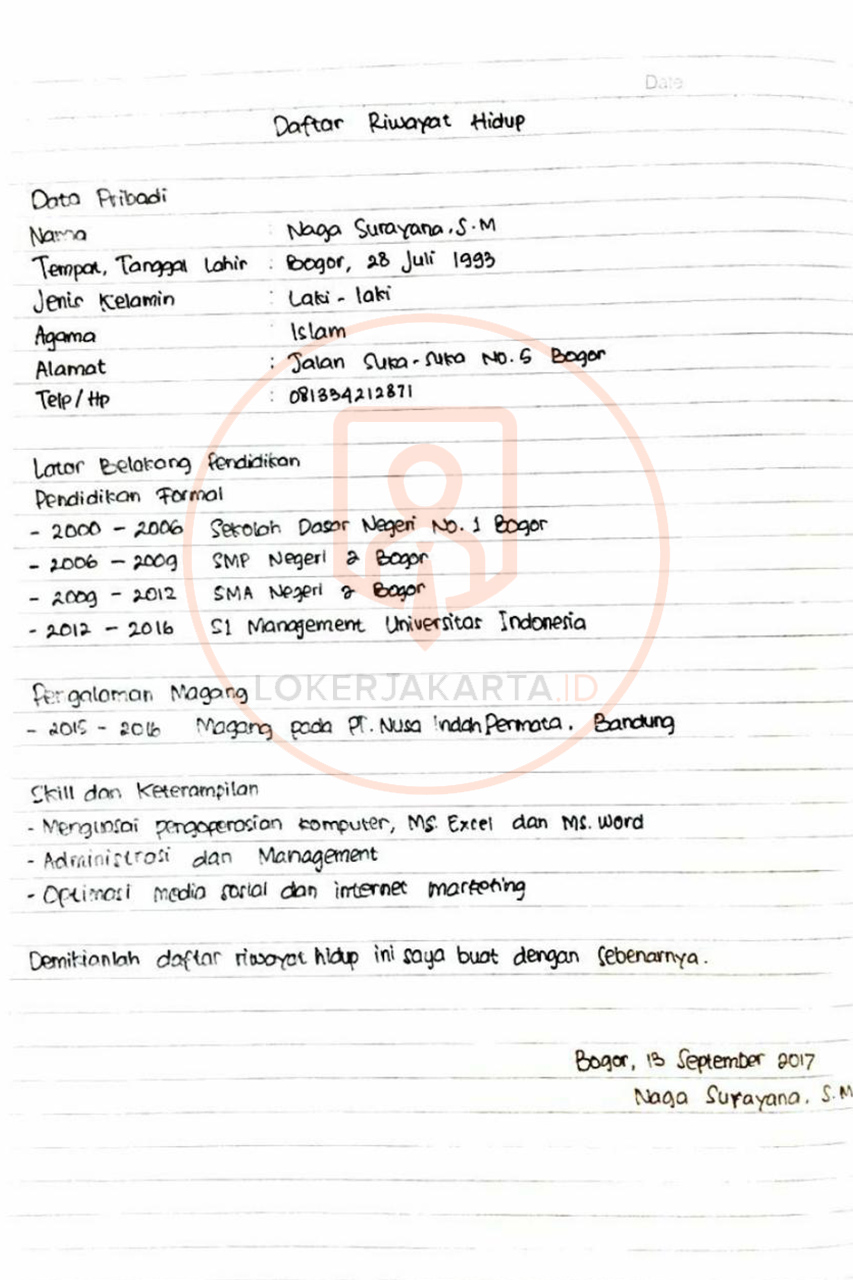 Date
Daftar Riwayat Hidup
Data Pribadi
Nama : Naga Surayana, S.M
Tempat, Tanggal Lahir : Bogor, 28 Juli 1993
Jenis Kelamin : Laki - laki
Agama : Islam
Alamat : Jalan Suka-Suka No. 5 Bogor
Telp/Hp : 081334212871
Latar Belakang Pendidikan
Pendidikan Formal
- 2000 - 2006 Sekolah Dasar Negeri No. 1 Bogor
- 2006 - 2009 SMP Negeri 2 Bogor
- 2009 - 2012 SMA Negeri 2 Bogor
- 2012 - 2016 S1 Management Universitas Indonesia
LOKERJAKARTA.ID
Pengalaman Magang
- 2015 - 2016 Magang pada PT. Nusa Indah Permata, Bandung
Skill dan Keterampilan
- Menguasai pengoperasian komputer, MS. Excel dan MS. Word
- Administrasi dan Management
- Optimasi media sosial dan internet marketing
Demikianlah daftar riwayat hidup ini saya buat dengan sebenarnya.
Bogor, 13 September 2017
Naga Surayana, S.M